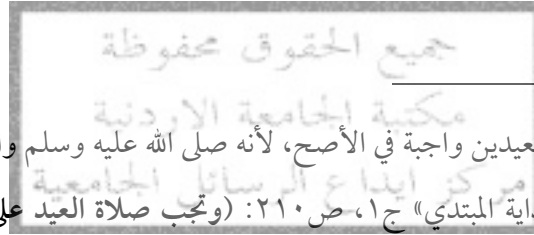 جميع الحقوق محفوظة
مكتبة الجامعة الاردنية
لعيدين واجبة في الأصح، لأنه صلى الله عليه وسلم
مركز ايداع الرسائل الجامعية
داية المبتدي» ج١، ص٢١٠: (وتجب صلاة العيد على